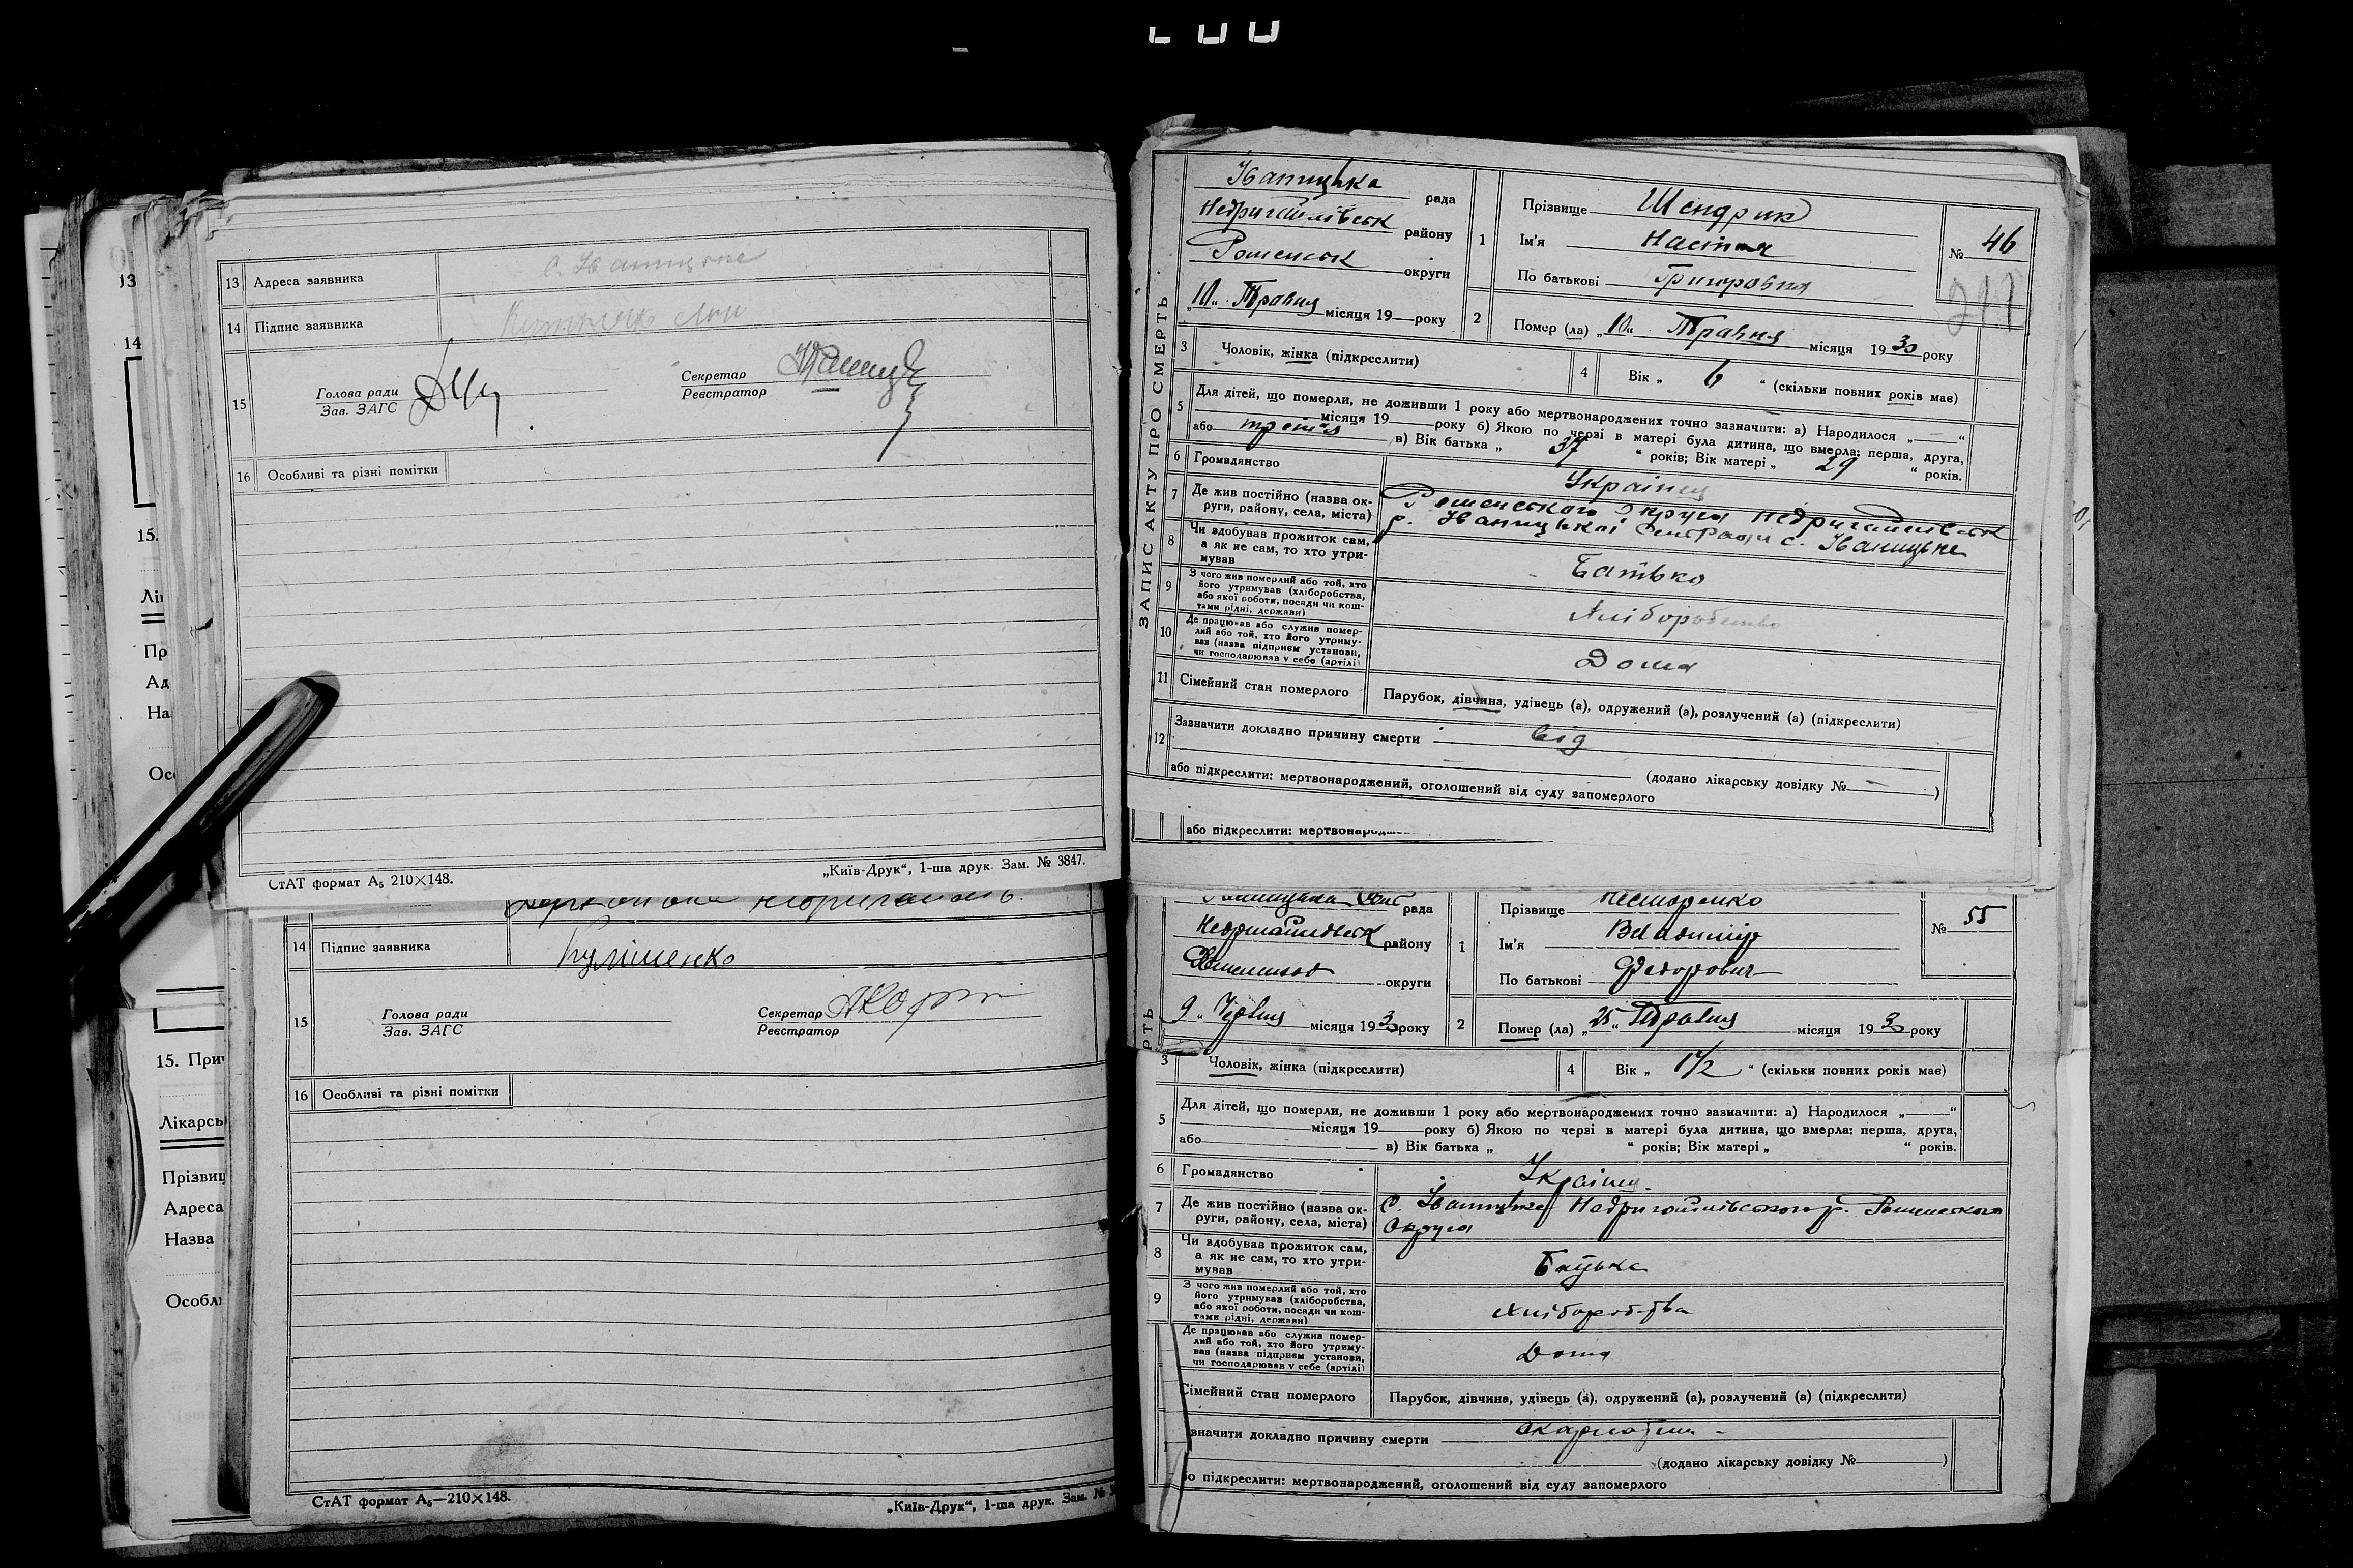 13 Адреса заявника
14 Підпис заявника
15 Голова ради
Зав. ЗАГС
Секретар
Реєстратор
16 Особливі та різні помітки
СтАТ формат А₅ 210×148.
„Київ-Друк“, 1-ша друк. Зам. № 3847.
14 Підпис заявника Кулішенко
15 Голова ради
Зав. ЗАГС
Секретар
Реєстратор
16 Особливі та різні помітки
СтАТ формат А₅—210×148.
„Київ-Друк“, 1-ша друк. Зам. №
13
14
15.
Лі
Пр
Ад
На
Ос
15. При
Лікарсь
Прізвищ
Адреса
Назва
Особл
ЗАПИС АКТУ ПРО СМЕРТЬ
Іваницька рада
Недригайлівськ району
Роменськ округи
„10“ Травня місяця 19 року
1 Прізвище Шендрик
Ім'я Настя
По батькові Григоровна
№ 46
211
2 Помер (ла) „10“ Травня місяця 1930 року
3 Чоловік, жінка (підкреслити)
4 Вік „ 6 “ (скільки повних років має)
5 Для дітей, що померли, не доживши 1 року або мертвонароджених точно зазначити: а) Народилося „ “
місяця 19 року б) Якою по черзі в матері була дитина, що вмерла: перша, друга,
або третя в) Вік батька „ 37 “ років; Вік матері „ 29 “ років.
6 Громадянство Україна
7 Де жив постійно (назва округи, району, села, міста) Роменського Округа Недригайлівськ
р. Іваницької Сельради с. Іваницьке
8 Чи здобував прожиток сам,
а як не сам, то хто утримував
Батько
9 З чого жив померлий або той, хто
його утримував (хліборобства,
або якої роботи, посади чи коштами рідні, держави)
Хліборобство
10 Де працював або служив померлий або той, хто його утримував (назва підприєм установи,
чи господарював у себе (артілі)
Дома
11 Сімейний стан померлого Парубок, дівчина, удівець (а), одружений (а), розлучений (а) (підкреслити)
12 Зазначити докладно причину смерти від
(додано лікарську довідку № )
або підкреслити: мертвонароджений, оголошений від суду запомерлого
або підкреслити: мертвонародж
рада
Недригайлівськ району
округи
9 „ Червня місяця 1930 року
1 Прізвище Несторенко
Ім'я Владимір
По батькові Федорович
№ 55
2 Помер (ла) „25“ Травня місяця 1930 року
РТЬ
3 Чоловік, жінка (підкреслити)
4 Вік „ 1 1/2 “ (скільки повних років має)
5 Для дітей, що померли, не доживши 1 року або мертвонароджених точно зазначити: а) Народилося „ “
місяця 19 року б) Якою по черзі в матері була дитина, що вмерла: перша, друга,
або в) Вік батька „ “ років; Вік матері „ “ років.
6 Громадянство Україна
7 Де жив постійно (назва округи, району, села, міста) С. Іваницьке Недригайлівського р. Роменского
Округа
8 Чи здобував прожиток сам,
а як не сам, то хто утримував
Батька
9 З чого жив померлий або той, хто
його утримував (хліборобства,
або якої роботи, посади чи коштами рідні, держави)
Хліборобства
Де працював або служив померлий або той, хто його утримував (назва підприєм установи,
чи господарював у себе (артілі)
Дома
Сімейний стан померлого Парубок, дівчина, удівець (а), одружений (а), розлучений (а) (підкреслити)
значити докладно причину смерти
(додано лікарську довідку № )
бо підкреслити: мертвонароджений, оголошений від суду запомерлого